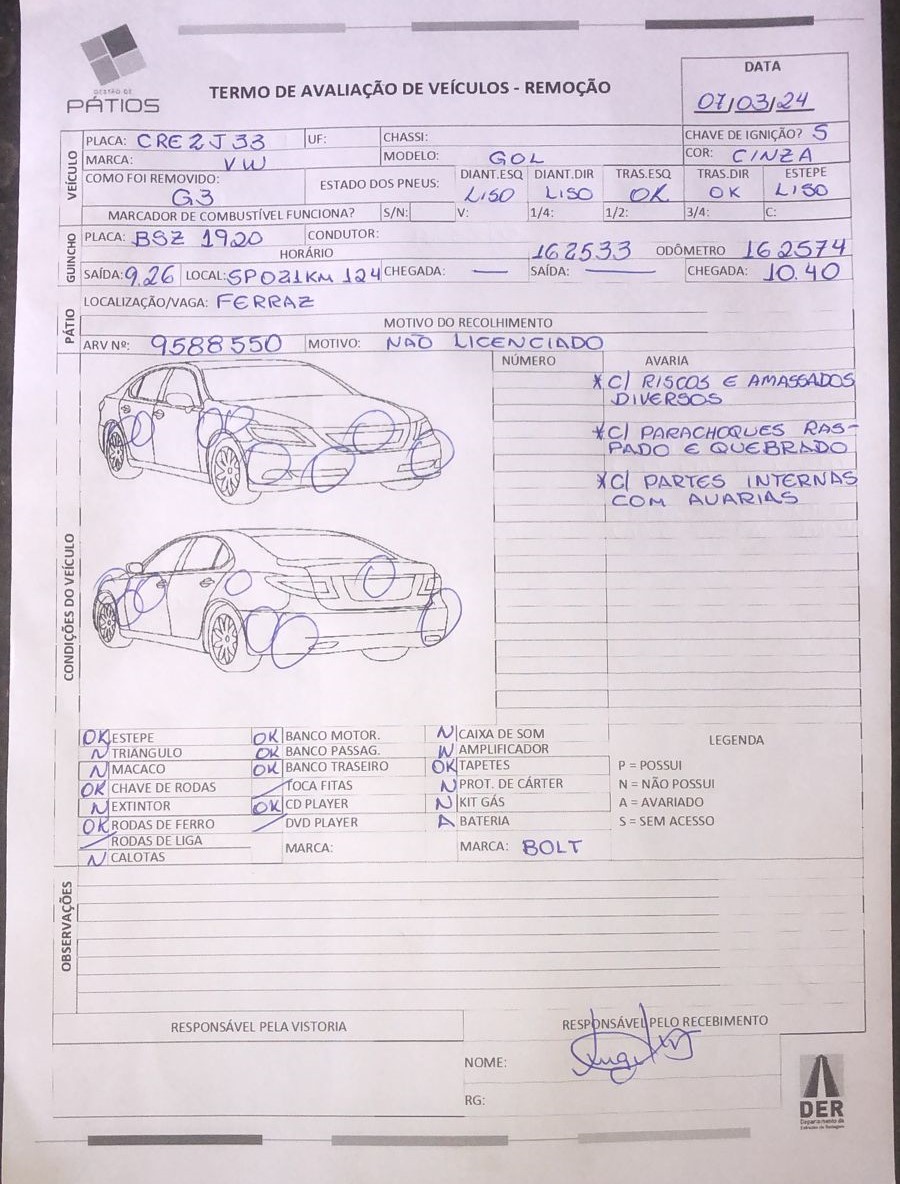 GESTÃO DE
PÁTIOS
TERMO DE AVALIAÇÃO DE VEÍCULOS - REMOÇÃO
DATA
07/03/24
VEÍCULO
PLACA: CRE2J33 UF: CHASSI: CHAVE DE IGNIÇÃO? S
MARCA: VW MODELO: GOL COR: CINZA
COMO FOI REMOVIDO: G3 ESTADO DOS PNEUS: DIANT.ESQ DIANT.DIR TRAS.ESQ TRAS.DIR ESTEPE
LISO LISO OK OK LISO
MARCADOR DE COMBUSTÍVEL FUNCIONA? S/N: V: 1/4: 1/2: 3/4: C:
GUINCHO
PLACA: BSZ 1920 CONDUTOR:
HORÁRIO 162533 ODÔMETRO 162574
SAÍDA: 9.26 LOCAL: SP021KM 124 CHEGADA: — SAÍDA: — CHEGADA: 10.40
PÁTIO
LOCALIZAÇÃO/VAGA: FERRAZ
MOTIVO DO RECOLHIMENTO
ARV Nº: 9588550 MOTIVO: NÃO LICENCIADO
CONDIÇÕES DO VEÍCULO
NÚMERO AVARIA
*C/ RISCOS E AMASSADOS
DIVERSOS
*C/ PARACHOQUES RAS-
PADO E QUEBRADO
*C/ PARTES INTERNAS
COM AVARIAS
OK ESTEPE OK BANCO MOTOR. N CAIXA DE SOM LEGENDA
N TRIÂNGULO OK BANCO PASSAG. N AMPLIFICADOR
N MACACO OK BANCO TRASEIRO OK TAPETES P = POSSUI
OK CHAVE DE RODAS / TOCA FITAS N PROT. DE CÁRTER N = NÃO POSSUI
N EXTINTOR OK CD PLAYER N KIT GÁS A = AVARIADO
OK RODAS DE FERRO / DVD PLAYER A BATERIA S = SEM ACESSO
/ RODAS DE LIGA MARCA: MARCA: BOLT
N CALOTAS
OBSERVAÇÕES
RESPONSÁVEL PELA VISTORIA RESPONSÁVEL PELO RECEBIMENTO
NOME:
RG:
DER
Departamento de
Estradas de Rodagem